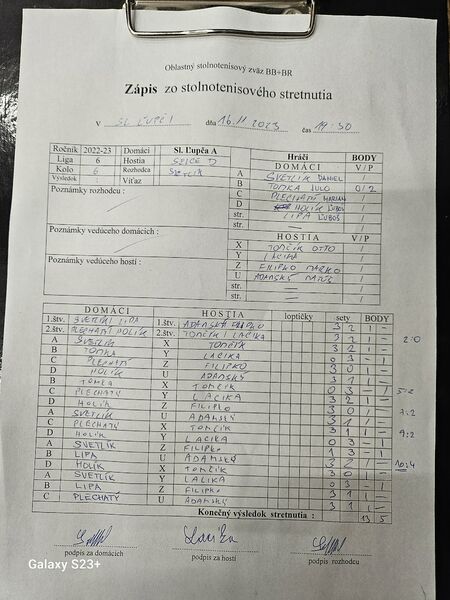 Oblastný stolnotenisový zväz BB+BR
Zápis zo stolnotenisového stretnutia
V SL. ĽUPČI dňa 16.11 2023 čas 19-30
Ročník 2022-23 Domáci Sl. Ľupča A
Liga 6 Hostia D
Kolo 6 Rozhodca SVETLÍK
Výsledok Víťaz
Poznámky rozhodcu :
Poznámky vedúceho domácich :
Poznámky vedúceho hostí :
Hráči BODY
DOMÁCI V / P
A SVETLÍK DANIEL /
B TOMKA JULO 0/2
C PLECHATÝ MARIAN /
D HOLÍK ĽUBOŠ /
str. LIPA ĽUBOŠ /
str. /
HOSTIA V / P
X TOMČÍK OTTO /
Y LACIKA /
Z FILIPKO MARKO /
U ADAMSKÝ MATÚŠ /
str. — /
str. — /
DOMÁCI HOSTIA loptičky sety BODY
1.štv. SVETLÍK LIPA 1.štv. ADAMSKÝ FILIPKO 3 2 1 -
2.štv. PLECHATÝ HOLÍK 2.štv. TOMČÍK LACIKA 3 2 1 - 2:0
A SVETLÍK X TOMČÍK 3 2 1 -
B TOMKA Y LACIKA 0 3 - 1
C PLECHATÝ Z FILIPKO 3 0 1 -
D HOLÍK U ADAMSKÝ 3 1 1 -
B TOMKA X TOMČÍK 0 3 - 1 5:2
C PLECHATÝ Y LACIKA
D HOLÍK Z FILIPKO 3 0 1 - 7:2
A SVETLÍK U ADAMSKÝ 3 1 1 -
C PLECHATÝ X TOMČÍK 3 1 1 - 9:2
D HOLÍK Y LACIKA 0 3 - 1
A SVETLÍK Z FILIPKO
B LIPA U ADAMSKÝ 10:4
D HOLÍK X TOMČÍK 3 0 1 -
A SVETLÍK Y LACIKA
B LIPA Z FILIPKO 3 1 1 -
C PLECHATÝ U ADAMSKÝ 3 1 1 -
Konečný výsledok stretnutia : 13 5
Lacika
podpis za domácich podpis za hostí podpis rozhodcu
Galaxy S23+